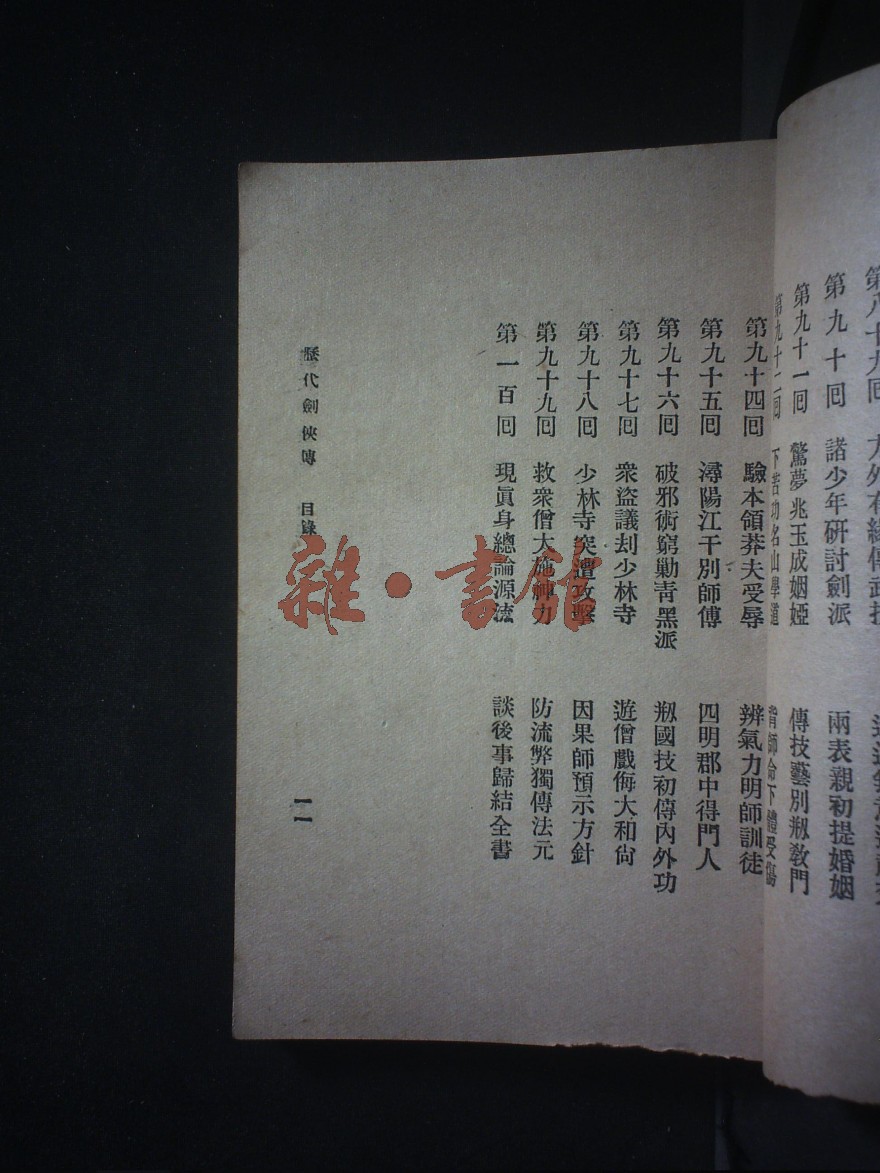 第九十回 諸少年研討劍派 兩表親初提婚姻
第九十一回 驚夢兆玉成姻婭 傳技藝別剏敎門
第九十二回 下苦功名山學道 背師命下體受傷
第九十四回 驗本領莽夫受辱 辨氣力明師訓徒
第九十五回 潯陽江干別師傅 四明郡中得門人
第九十六回 破邪術窮勦靑黑派 剏國技初傳內外功
第九十七回 衆盜議刦少林寺 遊僧戲侮大和尙
第九十八回 少林寺突遭攻擊 因果師預示方針
第九十九回 救衆僧大施神力 防流弊獨傳法元
第一百回 現眞身總論源流 談後事歸結全書
歷代劍俠傳 目錄
一一
雜·書館